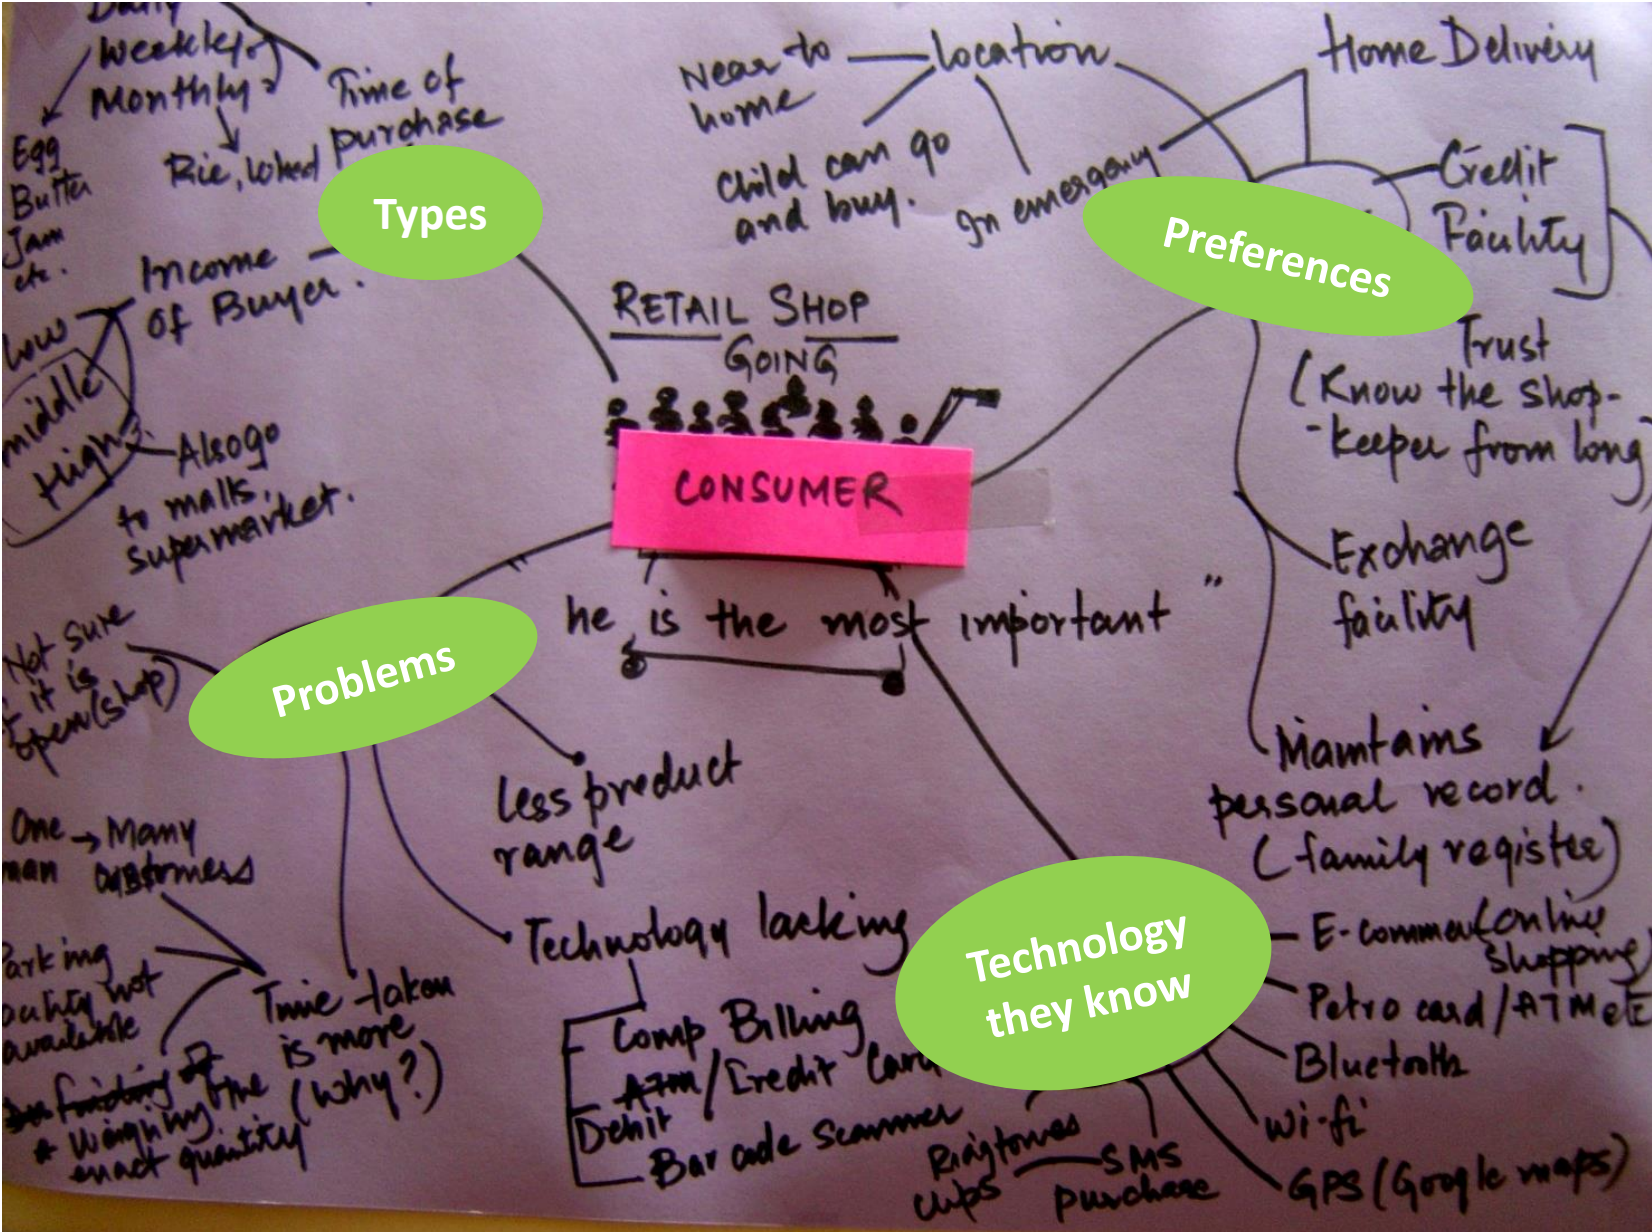 Daily
Weekly
Monthly
Time of
purchase
Egg
Butter
Jam
etc.
Types
Income
of Buyer.
Low
middle
High
Also go
to malls,
supermarket.
Near to
home
location
Child can go
and buy.
In emergency
Home Delivery
Credit
Facility
Preferences
Trust
(Know the shop-
-keeper from long)
Exchange
facility
Maintains
personal record.
(family register)
RETAIL SHOP
GOING
CONSUMER
he is the most important "
Problems
Not sure
it is
open (shop)
less product
range
One → Many
man customers
Parking
not
available
Time taken
is more
(Why?)
* Weighing the
exact quantity
Technology lacking
Comp Billing
ATM/Credit Card
Debit
Bar code scanner
Technology
they know
E-commerce (online
shopping)
Petro card/ATM etc
Bluetooth
Wi-fi
GPS (Google maps)
SMS
purchase
Ringtones
clips